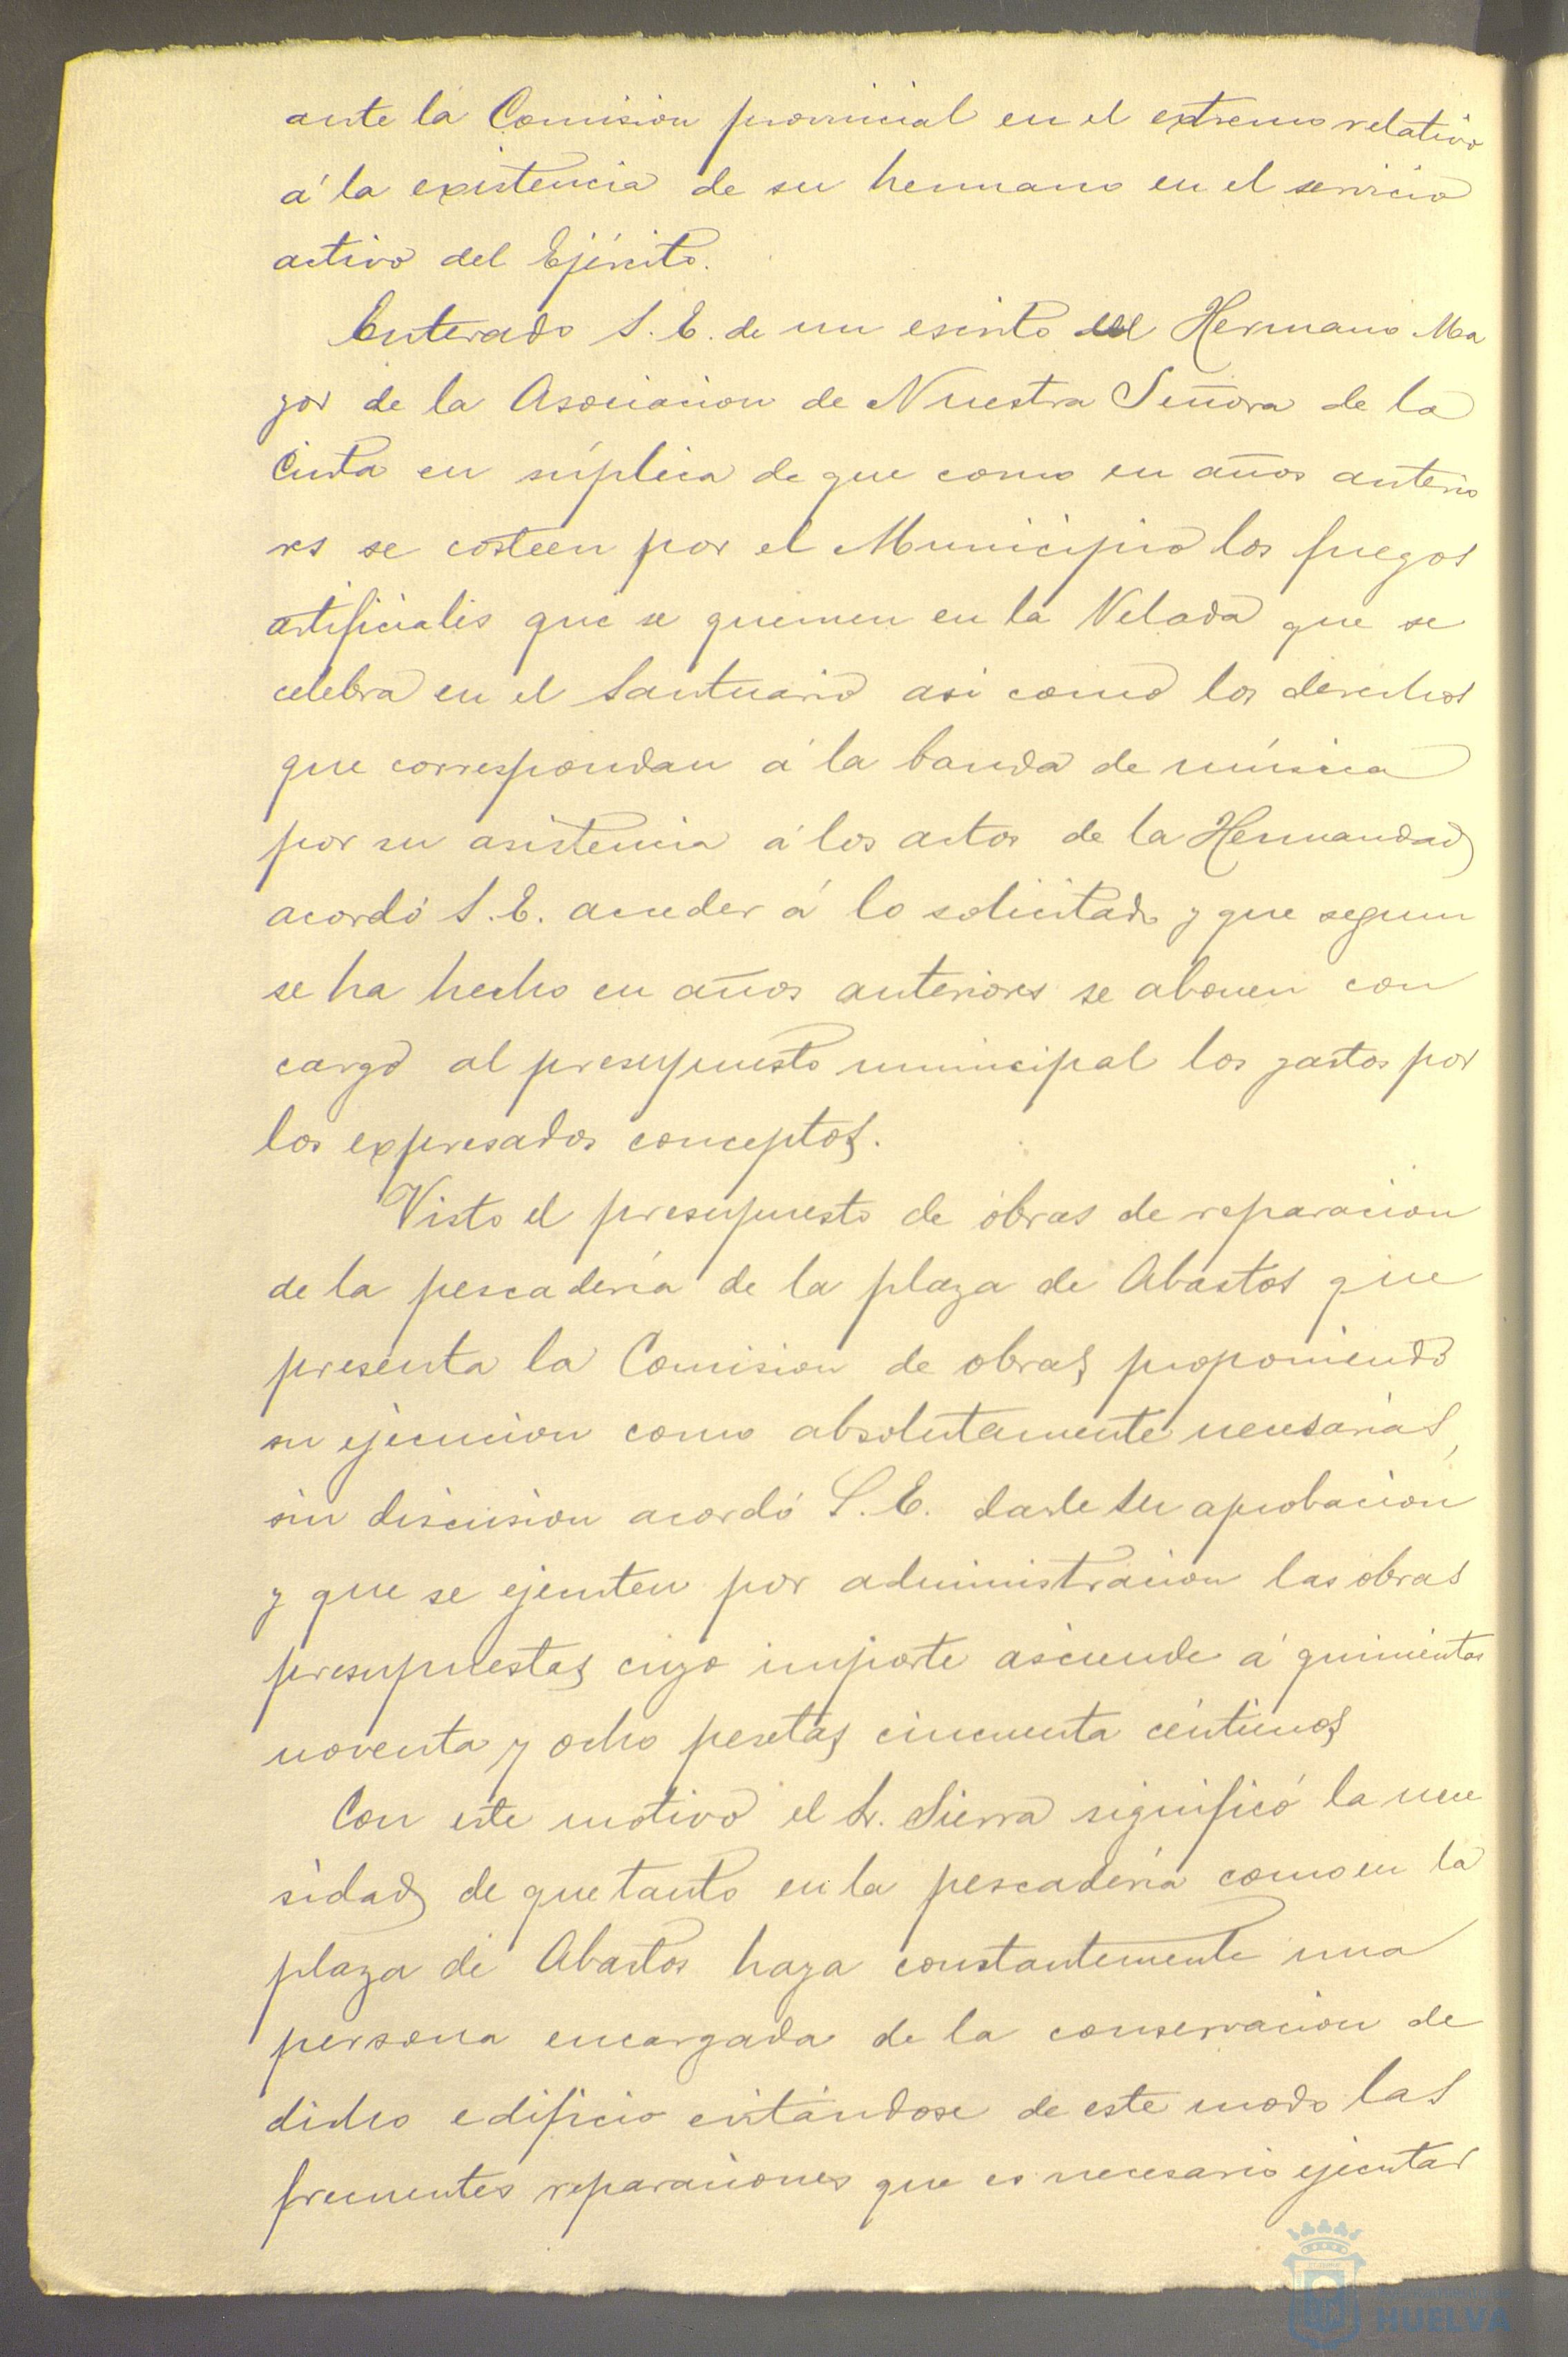 ante la Comision provincial en el extremo relativo
á la existencia de su hermano en el servicio
activo del Ejército.
Enterado S. E. de un escrito del Hermano Ma
yor de la Asociacion de Nuestra Señora de la
Cinta en súplica de que como en años anterio
res se costeen por el Municipio los fuegos
artificiales que se quemen en la Velada que se
celebra en el Santuario asi como los derechos
que correspondan á la banda de música
por su asistencia á los actos de la Hermandad
acordó S. E. acceder á lo solicitado y que segun
se ha hecho en años anteriores se abonen con
cargo al presupuesto municipal los gastos por
los expresados conceptos.
Visto el presupuesto de obras de reparacion
de la pescadería de la plaza de Abastos que
presenta la Comision de obras proponiendo
su ejecucion como absolutamente necesarias,
sin discusion acordó S. E. darle su aprobacion
y que se ejecuten por administracion las obras
presupuestas cuyo importe asciende á quinientas
noventa y ocho pesetas cincuenta céntimos
Con este motivo el Sr. Sierra significó la nece
sidad de que tanto en la pescadería como en la
plaza de Abastos haya constantemente una
persona encargada de la conservacion de
dicho edificio evitándose de este modo las
frecuentes reparaciones que es necesario ejecutar
HUELVA